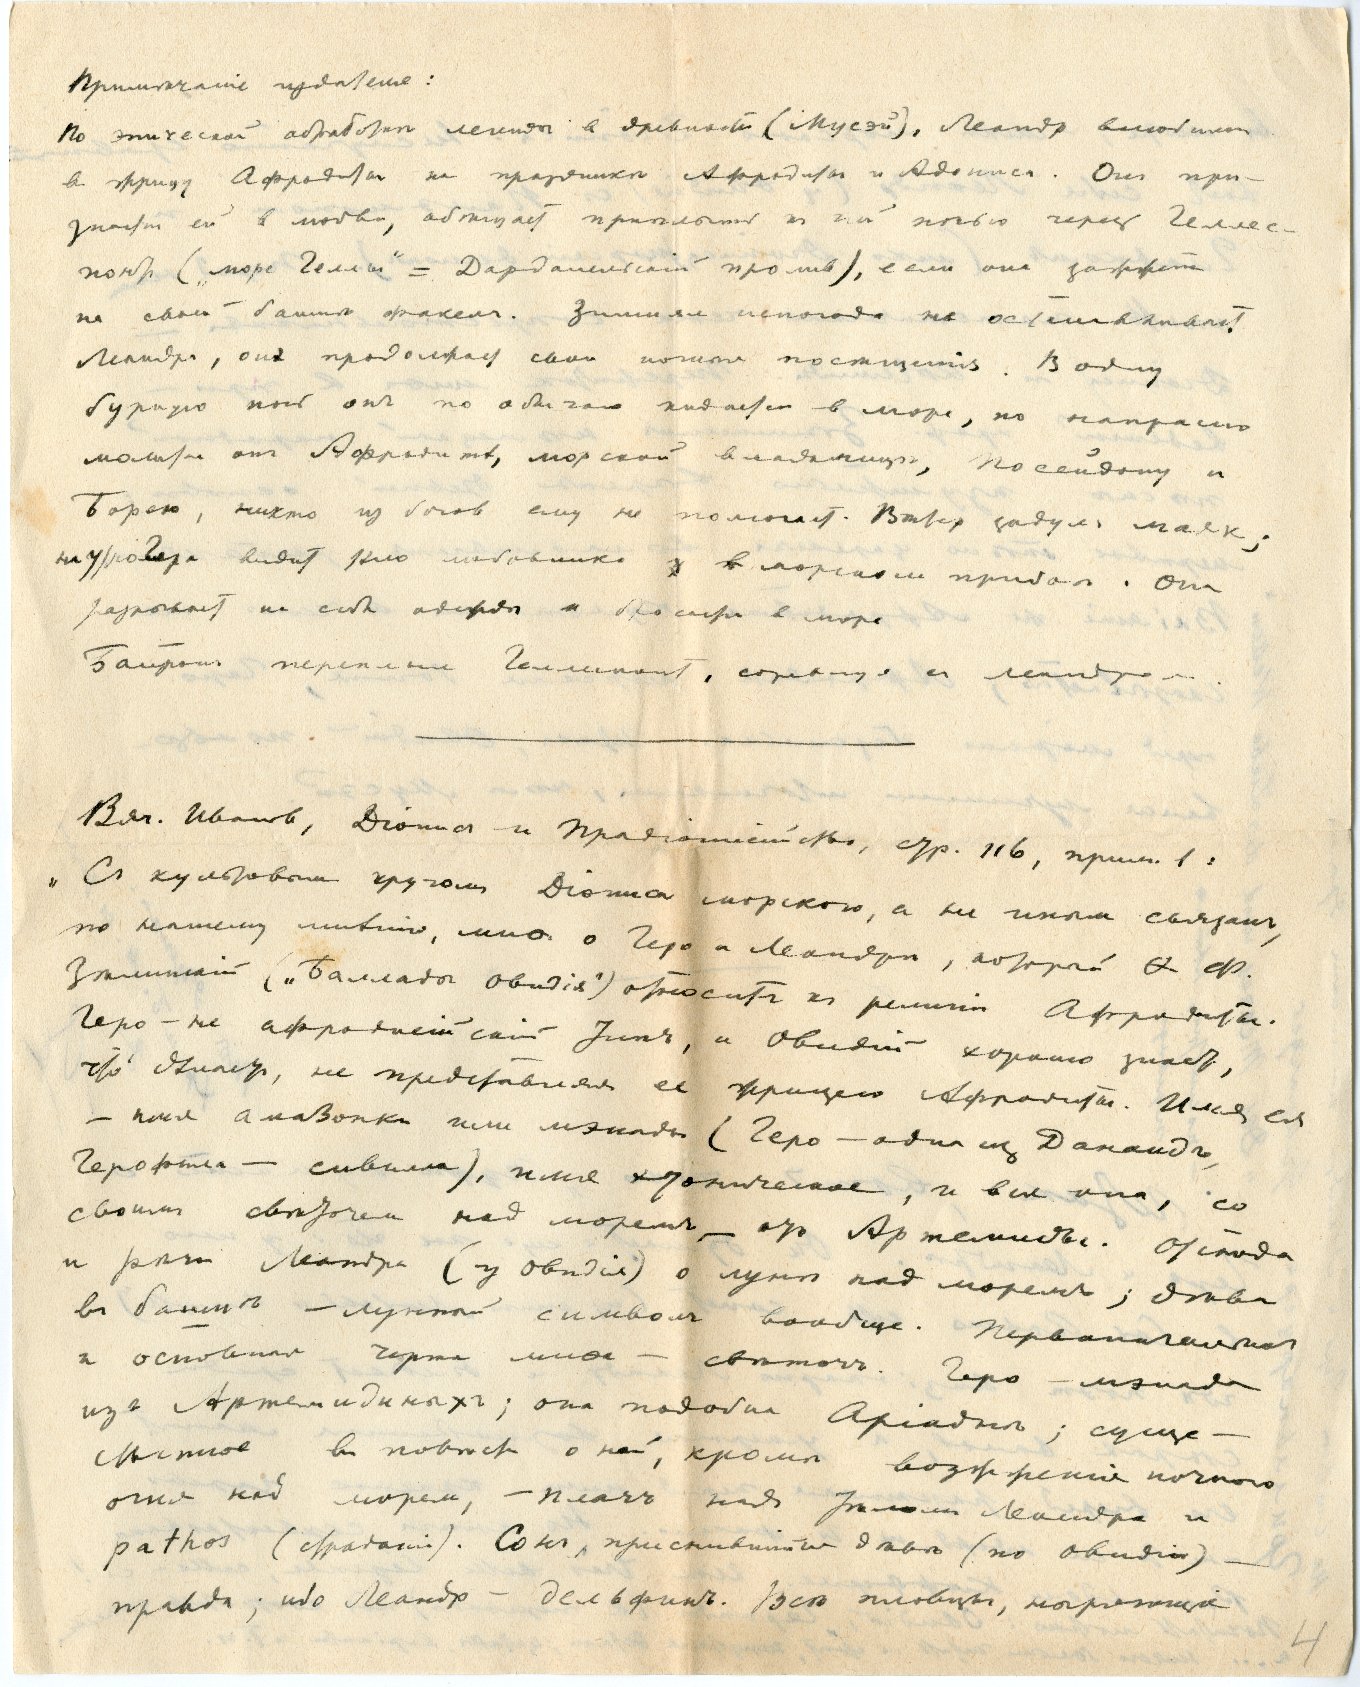 Примѣчаніе издателя:
По эпической обработкѣ легенды в древности (Мусэй), Леандр влюбился
в жрицу Афродиты на праздникѣ Афродиты и Адониса. Онъ при-
знается ей в любви, обѣщает приплыть къ ней ночью через Геллес-
понт („море Геллы“ = Дарданельскій пролив), если она зажжетъ
на своей башнѣ факелъ. Зимняя непогода не останавливает
Леандра, онъ продолжает свои ночныя посѣщенія. В одну
бурную ночь онъ по обычаю кидается в море, но напрасно
молится онъ Афродитѣ, морской владычицѣ, Посейдону и
Борею, никто из богов ему не помогает. Вѣтер задулъ маяк;
на утро Геро видит тѣло любовника в морском прибоѣ. Она
разрывает на себѣ одежды и бросается в море
Байронъ переплыл Геллеспонт, соревнуя съ Леандром.
Вяч. Иванов, Діонис и Прадіонисійство, стр. 116, прим. 1:
„Съ культовым кругомъ Діониса морского, а не иным связанъ,
по нашему мнѣнію, миѳ о Геро и Леандрѣ, который Ѳ. Ф.
Зѣлинскій („Баллады Овидія“) относитъ къ религіи Афродиты.
Геро – не афродисійскій типъ, и Овидій хорошо знает,
что дѣлаетъ, не представляя ее жрицею Афродиты. Имя ея
– имя амазонки или мэнады (Геро – одна из Данаидъ,
Герофила – сивилла), имя хѳоническое, и вся она, со
своимъ свѣточем над моремъ, – отъ Артемиды. Отсюда
и рѣчи Леандра (у Овидія) о лунѣ над моремъ; дѣва
въ башнѣ – лунный символъ вообще. Первоначальная
и основная черта миѳа – свѣточъ. Геро – мэнада
изъ Артемидиныхъ; она подобна Аріаднѣ; суще-
ственное въ повѣсти о ней, кромѣ возжженія ночного
огня над морем, – плачъ надъ тѣломъ Леандра и
pathos (страданій). Сонъ, приснившійся дѣвѣ (по Овидію) –
правда; ибо Леандр – дельфинъ. Всѣ пловцы, ныряющіе
4